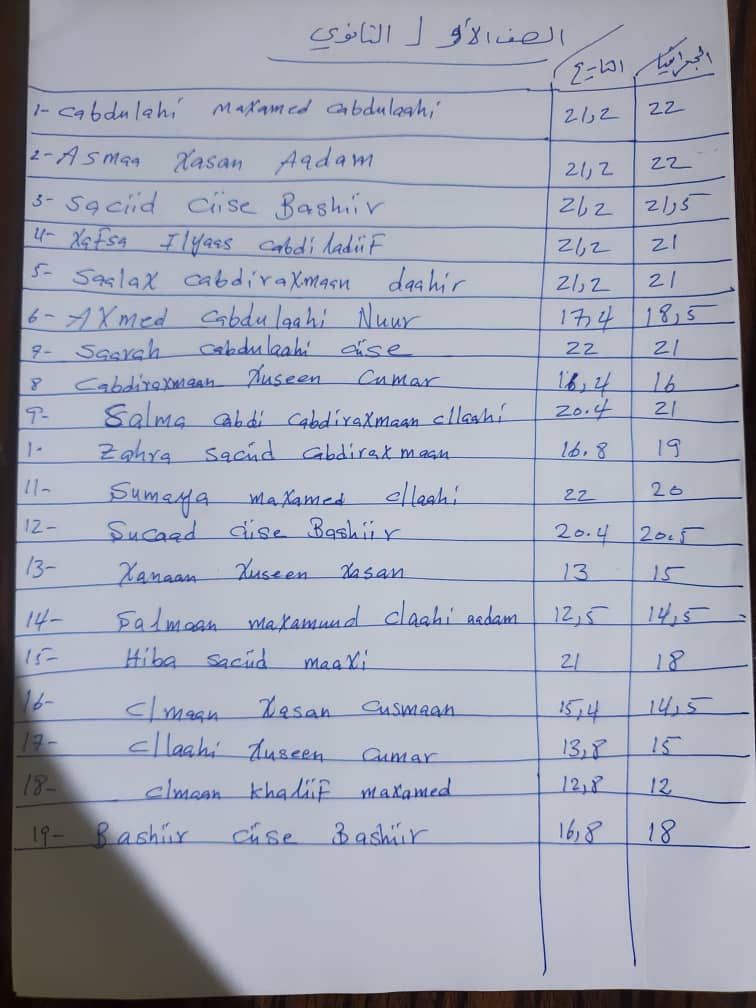 الصف الأول الثانوي
التاريخ الجغرافيا
1- Cabdulahi Maxamed Cabdulaahi 21,2 22
2- Asmaa Xasan Aadam 21,2 22
3- Saciid Ciise Bashiir 21,2 21,5
4- Xafsa Ilyaas Cabdiladiif 21,2 21
5- Saalax Cabdiraxmaan daahir 21,2 21
6- Axmed Cabdulaahi Nuur 17,4 18,5
7- Saarah Cabdulaahi Ciise 22 21
8 Cabdiraxmaan Xuseen Cumar 16,4 16
9- Salma Cabdi Cabdiraxmaan Cllaahi 20.4 21
1. Zahra Saciid Cabdiraxmaan 16.8 19
11- Sumaya Maxamed Cllaahi 22 20
12- Sucaad Ciise Bashiir 20.4 20.5
13- Xanaan Xuseen Xasan 13 15
14- Salmaan Maxamuud Claahi aadam 12,5 14,5
15- Hiba Saciid Maaxi 21 18
16- Clmaan Xasan Cusmaan 15,4 14,5
17- Cllaahi Xuseen Cumar 13,8 15
18- Clmaan Khaliif Maxamed 12,8 12
19- Bashiir Ciise Bashiir 16,8 18